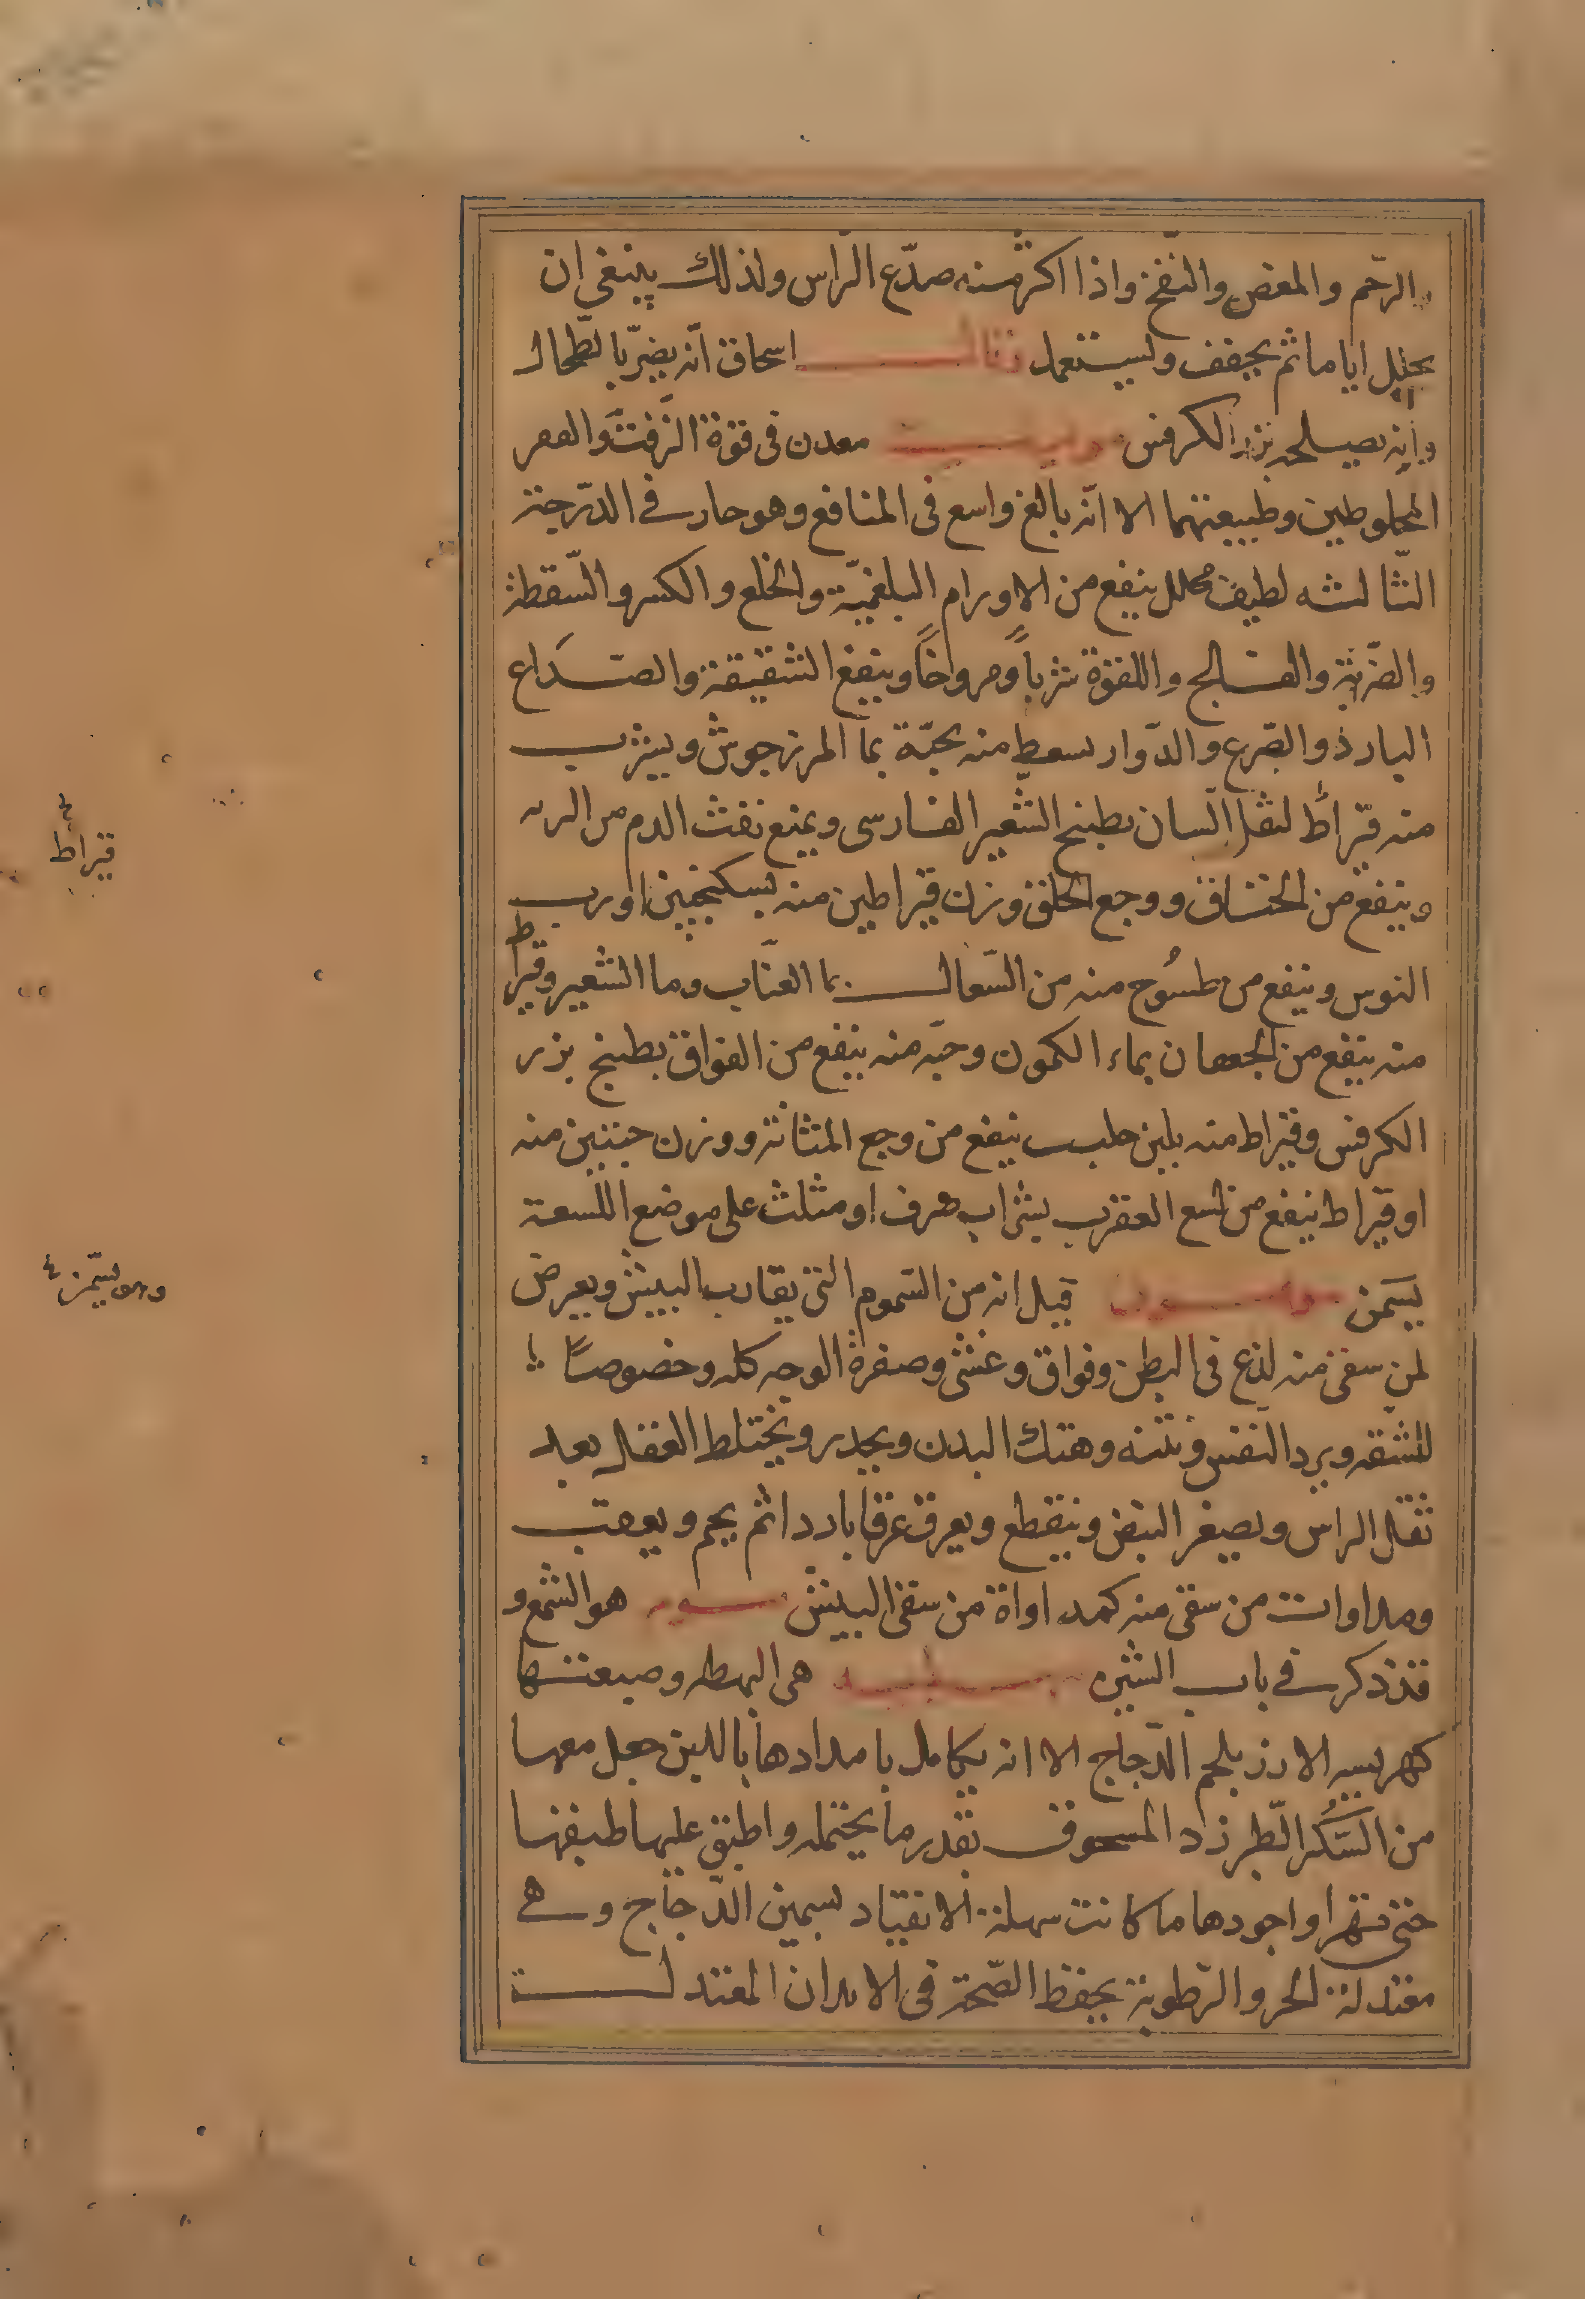 الرّحم والمغص والنفخ واذا اكثر منه صدّع الرّاس ولذلك ينبغي ان
يخلل اياما ثم يجفف وليستعمل قال اسحاق انّه يضرّ بالطّحال
وانه يصلحه بزر الكرفس معدن في قوّة الزّفت والقفر
المخلوطين وطبيعتهما الا انّه بالغ واسع في المنافع وهو حار في الدّرجة
الثّالثه لطيف محلل ينفع من الاورام البلغميّة والخلع والكسر والسّقطة
والضّربة والفالج واللقوة شرباً ومروخاً وينفع الشقيقة والصّداع
البارد والصّرع والدّوار يسعط منه بحبّة بما المرزجوش ويشرب
منه قيراط لثقل اللّسان بطبيخ الشّعير الفارسى ويمنع نفث الدم من الريه
وينفع من الخناق ووجع الحلق وزن قيراطين منه بسكنجبين او رب
التوس وينفع من طسُوج منه من السّعال بما العنّاب وما الشعير وقيراط
منه ينفع من الجعفان بماء الكمون وحبّه منه ينفع من الفواق بطبيخ بزر
الكرفس وقيراط منه بلبن حليب ينفع من وجع المثانة ووزن حبتين منه
او قيراط ينفع من لسع العقرب بشراب صرف او مثلث على موضع اللّسعة
يسمن قيل انه من السّموم التى يقارب البيش ويعرض
لمن سقى منه لذع فى البطن وفواق وغشى وصفرة الوجه كله وخصوصاً
للشفه وبرد النفس ونتنه وهتك البدن ويجدر ويختلط العقل بعد
ثقل الراس ويصغر النبض وينقطع ويعرق عرقا باردا ثم يحم ويعقب
ومداوات من سقى منه كمداواة من سقى البيش هو الشمع و
قد ذكر في باب الشين هى البهطه وصنعتها
كهريسه الارز بلحم الدّجاج الا انه يكامل بامدادها باللبن جعل معها
من السّكُر الطّبرزد المسحوق بقدر ما يحتمله واطبق عليها طبقها
حتى تتهرا واجودها ما كانت سهلة الانقياد بسمين الدّجاج وهي
معتدلة الحر والرّطوبة يحفظ الصّحة فى الابدان المعتدلة
قيراط
وهو يسمّن